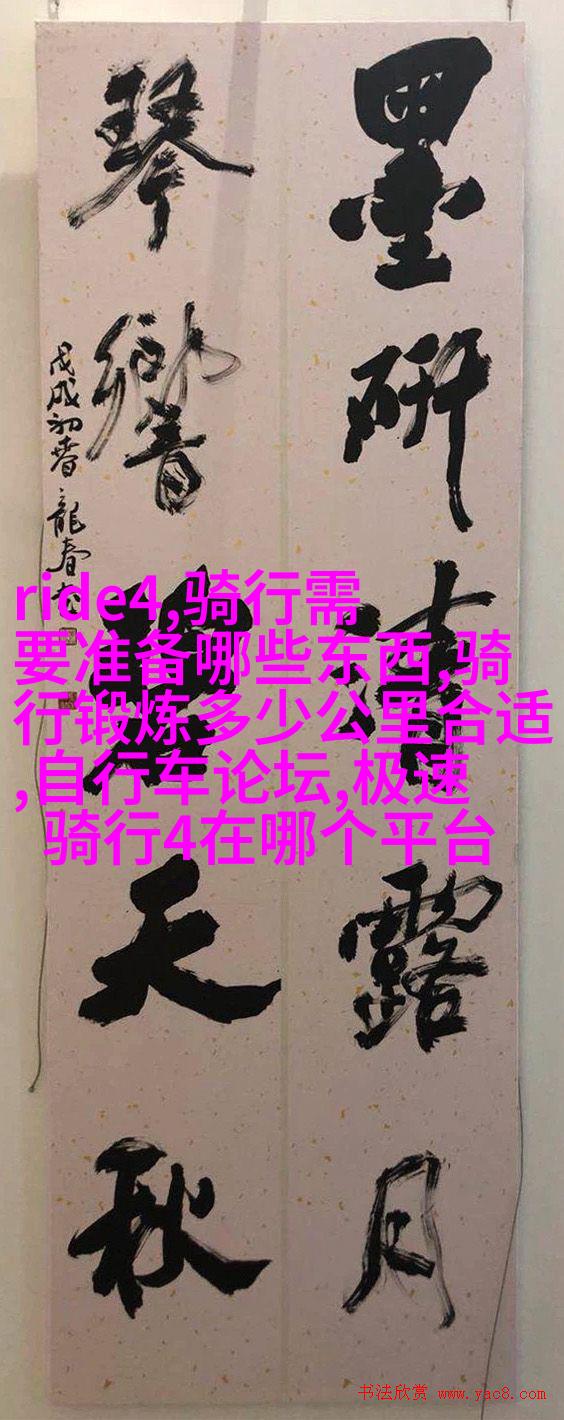 墨研清露月
琴響碧天秋
戊戌初春 龍春
ride4,骑行需
要准备哪些东西,骑
行锻炼多少公里合适
,自行车论坛,极速
骑行4在哪个平台
书法欣赏 www.yac8.com